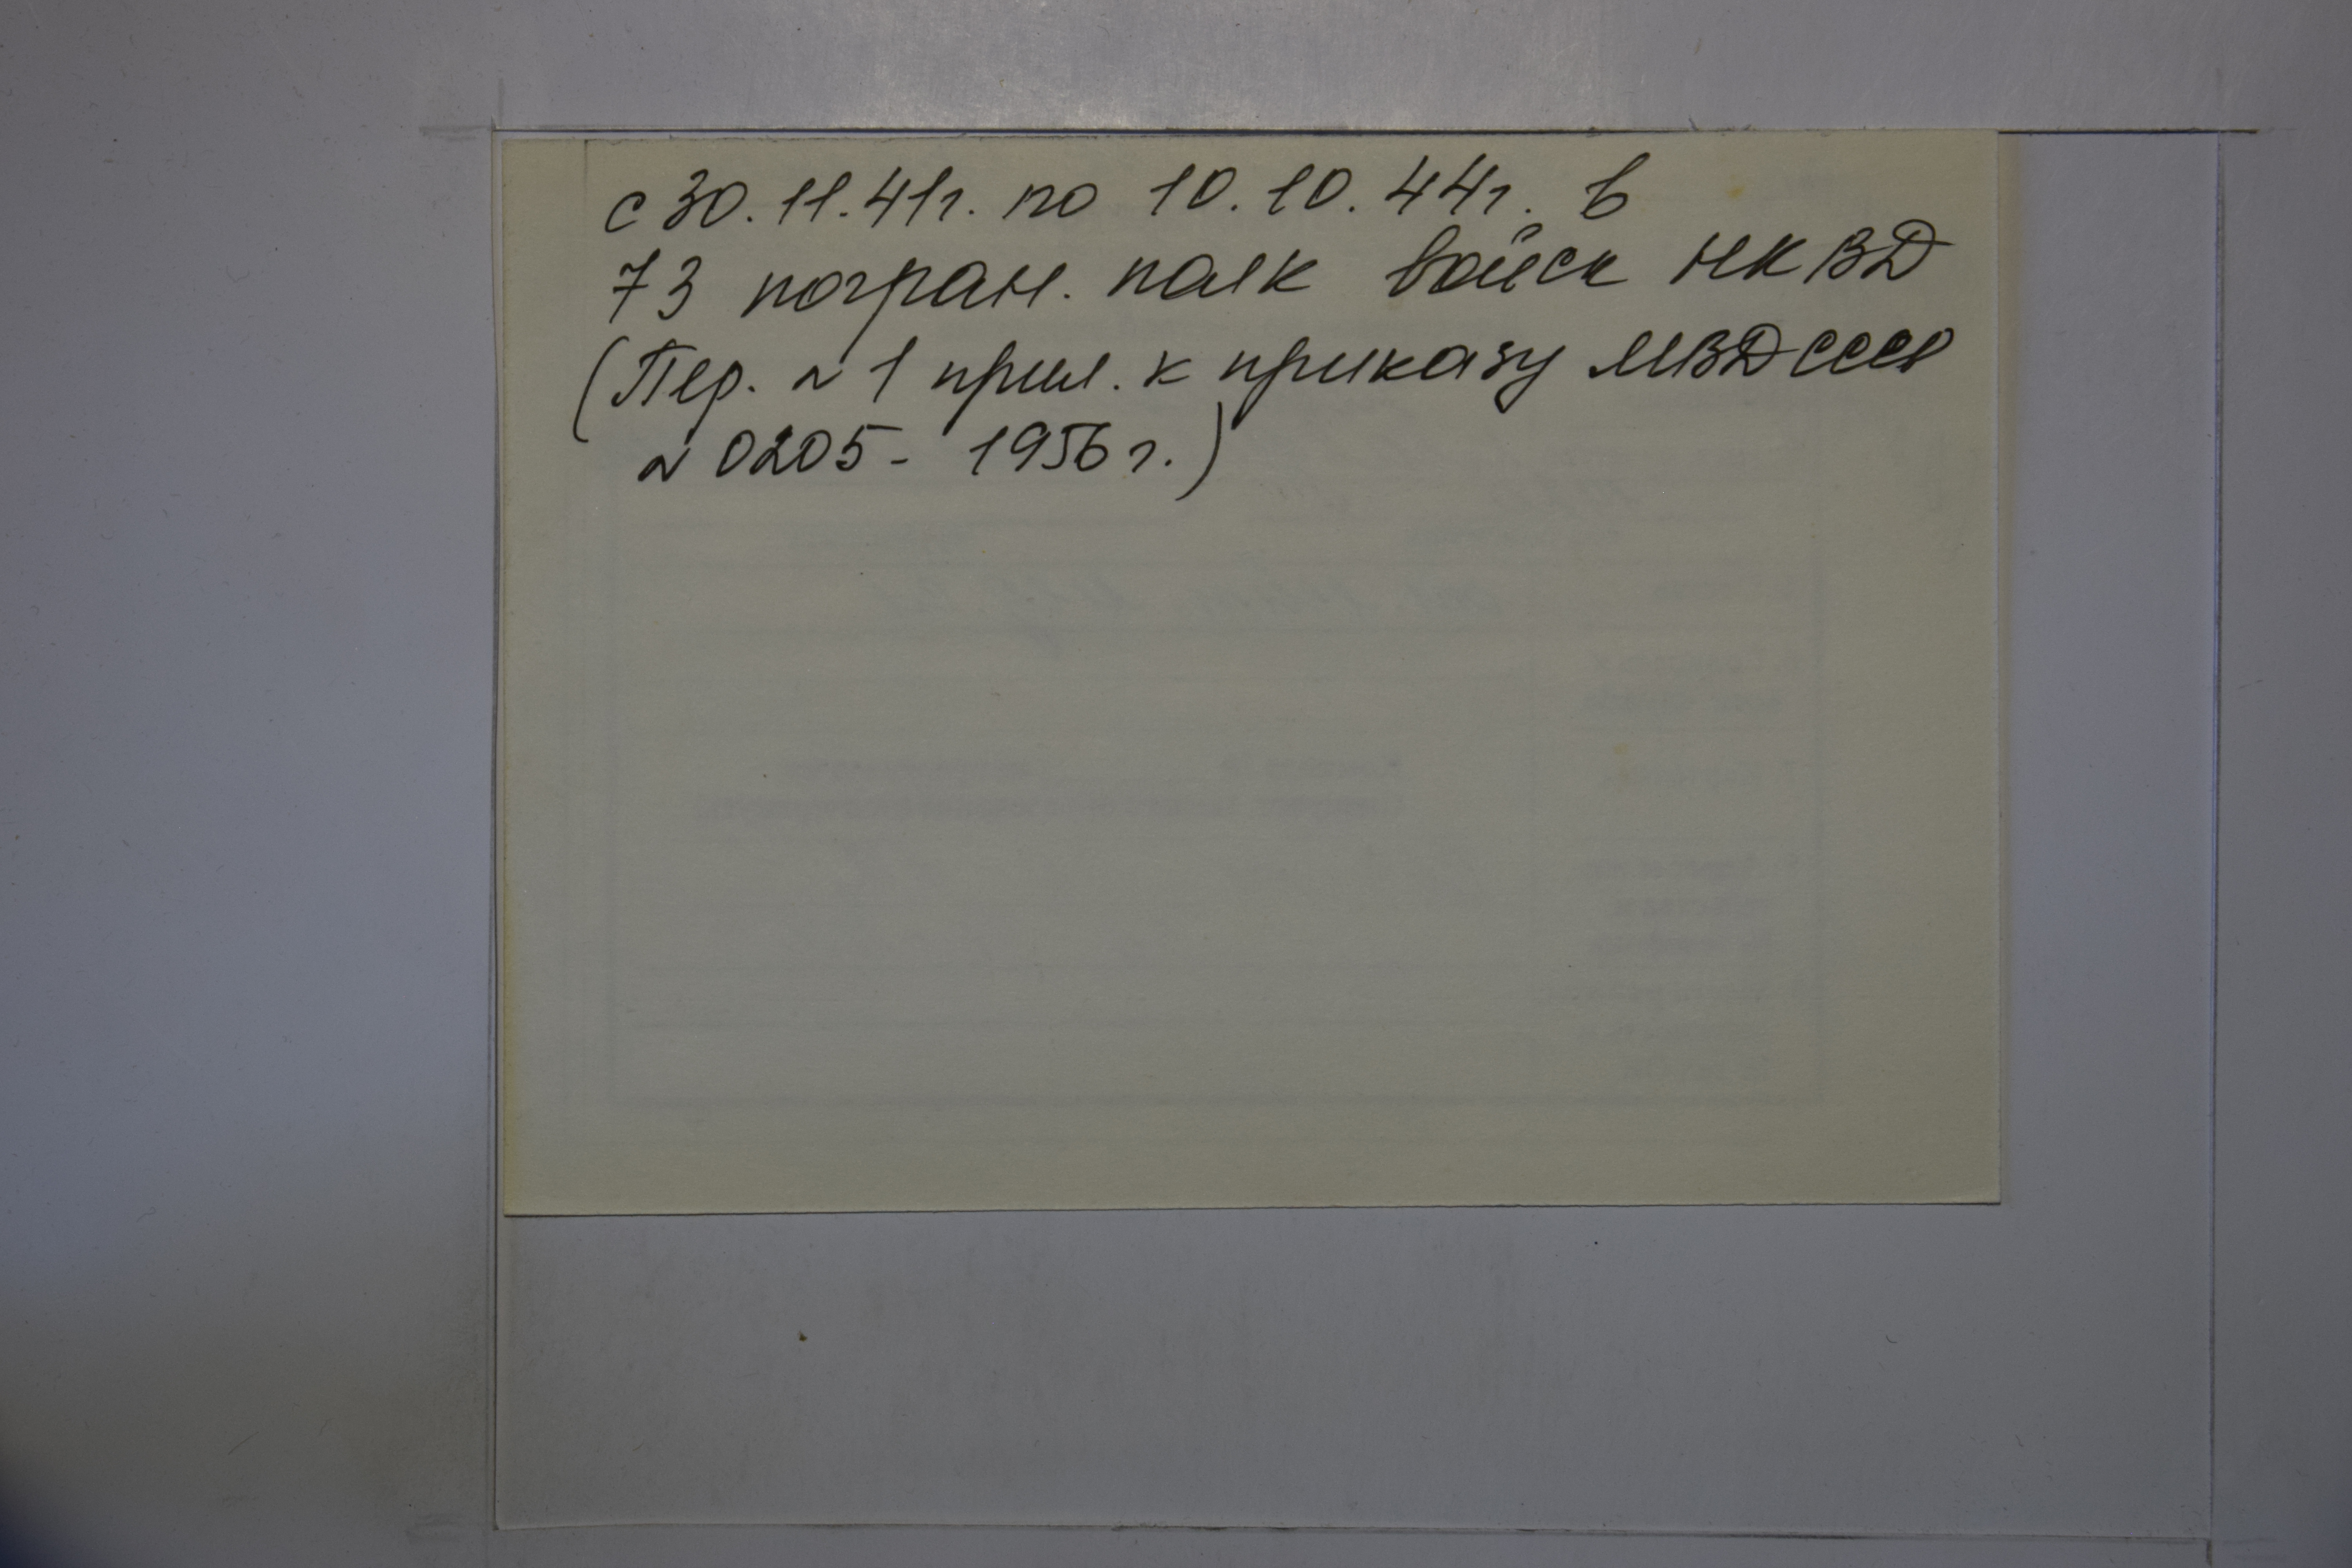 с 30.11.41г. по 10.10.44г. в
73 погран. полк войск НКВД
(Пер. № 1 прил. к приказу МВД СССР
№ 0205 - 1956 г.)